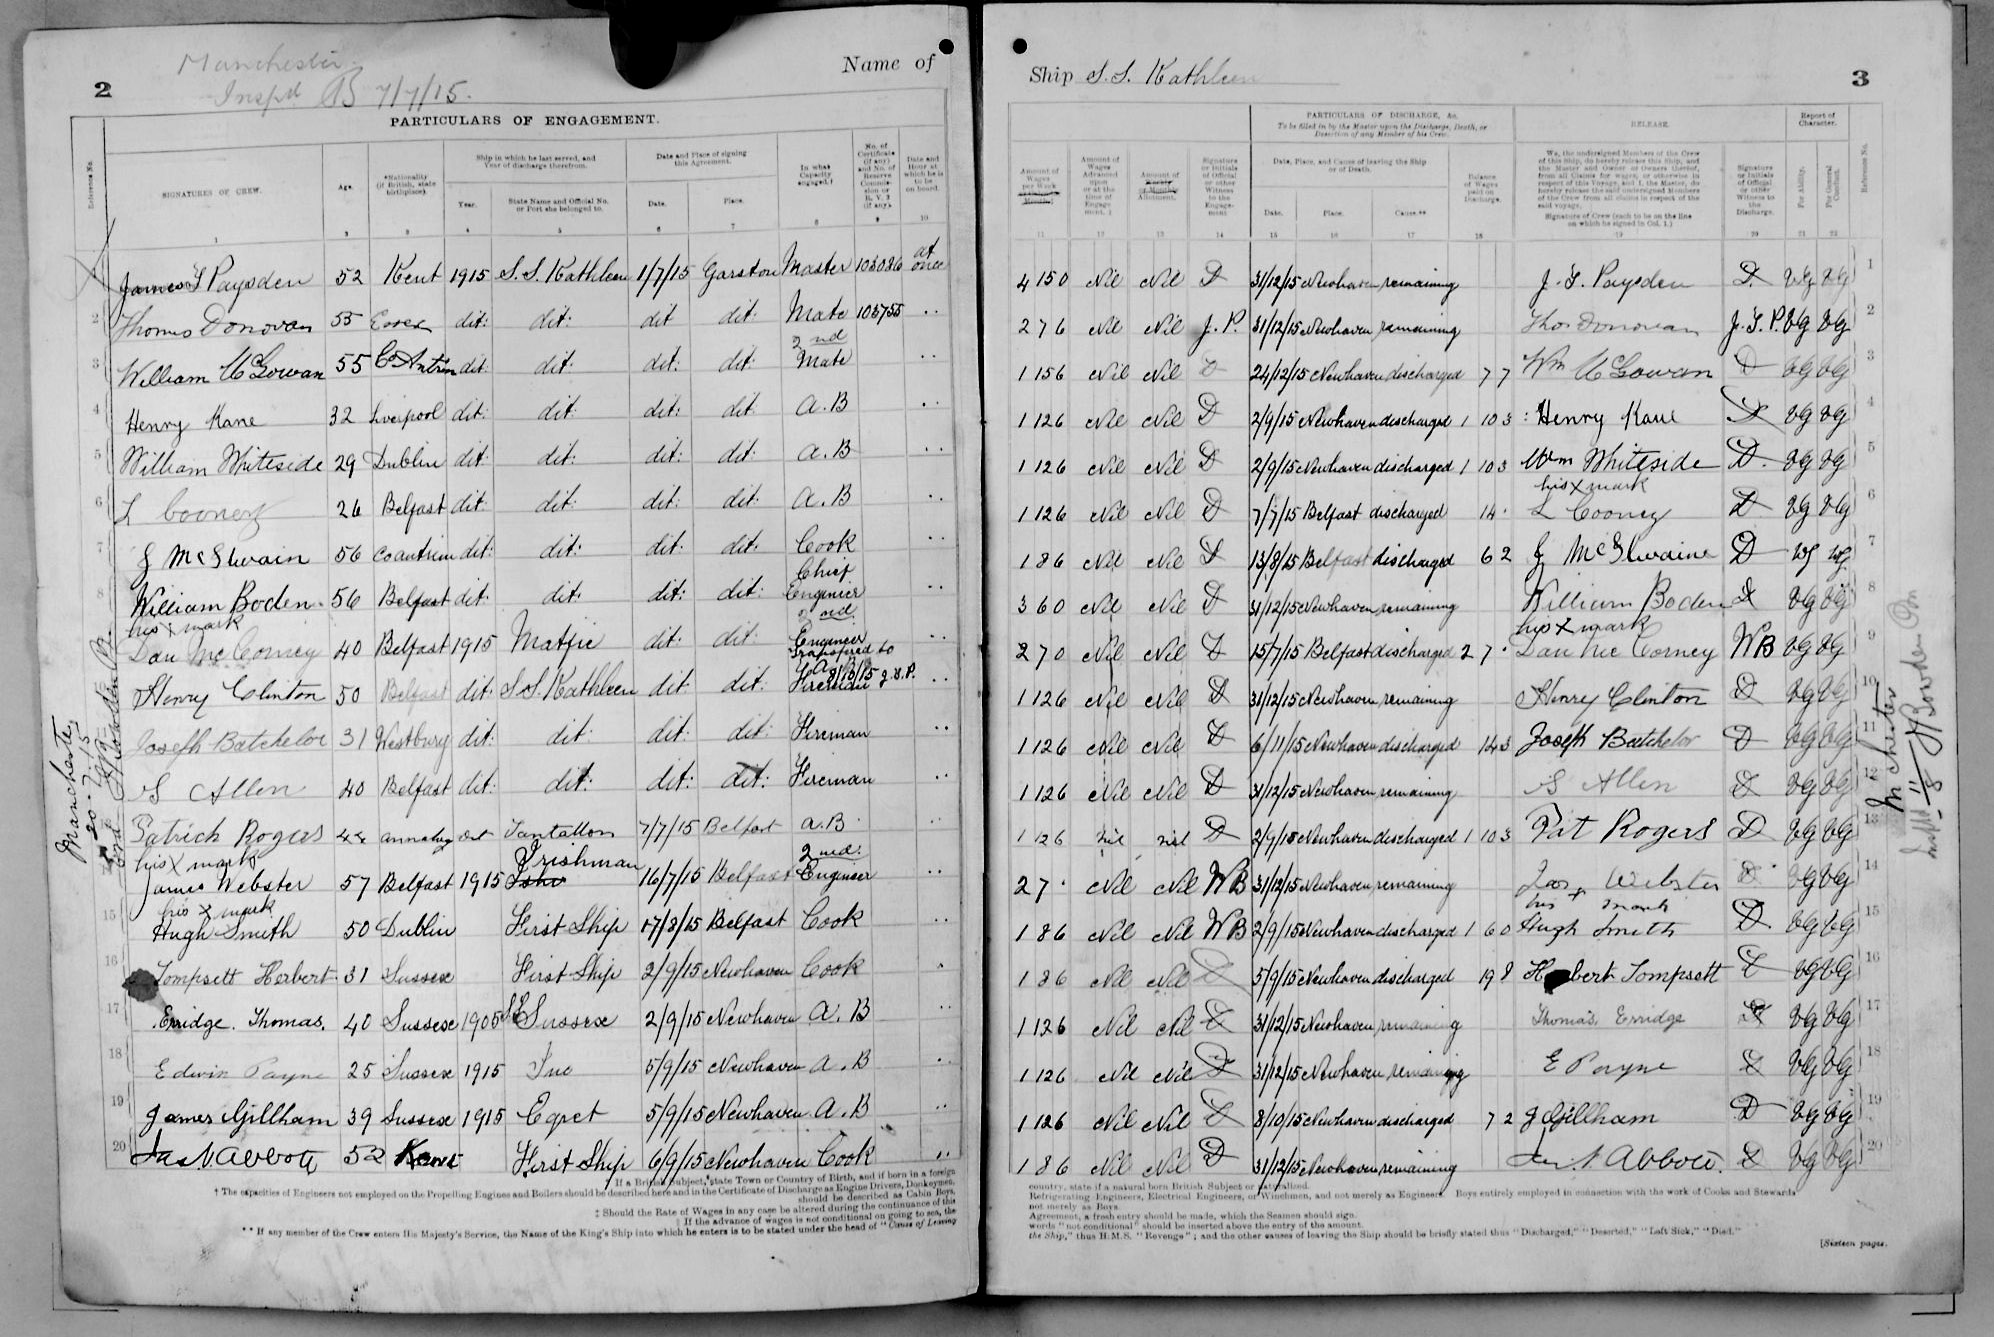 Manchester
Inspd B 7/7/15.
2
Name of
PARTICULARS OF ENGAGEMENT.
Reference No. SIGNATURES OF CREW. Age. *Nationality (if British, state birthplace). Ship in which he last served, and Year of discharge therefrom. Year. State Name and Official No. or Port she belonged to. Date and Place of signing this Agreement. Date. Place. In what Capacity engaged.† No. of Certificate (if any) and No. of Reserve Commission or R.V.2 (if any). Date and Hour at which he is to be on board.
1 2 3 4 5 6 7 8 9 10
James S Paysden 52 Kent 1915 S.S. Kathleen 1/7/15 Garston Master 103036 at once
2 Thomas Donovan 55 Essex dit: dit: dit dit: Mate 103755 ..
3 William McGowan 55 Co Antrim dit: dit: dit: dit: 2nd Mate ..
4 Henry Kane 32 Liverpool dit: dit: dit: dit: A.B ..
5 William Whiteside 29 Dublin dit: dit: dit: dit: A.B ..
6 L Cooney 26 Belfast dit: dit: dit: dit: A.B ..
7 J McIlwain 56 Co antrim dit: dit: dit: dit: Cook ..
8 William Boden 56 Belfast dit: dit: dit: dit: Chief Engineer ..
his x mark
Dan McCorney 40 Belfast 1915 Matjie dit: dit: 2nd Engineer ..
Henry Clinton 50 Belfast dit: S.S. Kathleen dit dit: Fireman transfired to J.S.P. ..
Joseph Batchelor 31 Westbury dit: dit: dit: dit: Fireman ..
S Allen 40 Belfast dit: dit: dit: dit: Fireman ..
Patrick Rogers 44 dit Tantallon 7/7/15 Belfast A.B ..
his x mark
James Webster 57 Belfast 1915 Irishman 16/7/15 Belfast 2nd Engineer ..
his x mark
15 Hugh Smith 50 Dublin First Ship 17/8/15 Belfast Cook ..
16 Tompsett Herbert 31 Sussex First Ship 2/9/15 Newhaven Cook .
17 Erridge. Thomas. 40 Sussex 1905 SS Sussex 2/9/15 Newhaven A.B ..
18 Edwin Payne 25 Sussex 1915 5/9/15 Newhaven A.B ..
19 James Gillham 39 Sussex 1915 Egret 5/9/15 Newhaven A.B ..
20 Jas N Abbott 52 Kent First Ship 6/9/15 Newhaven Cook ..
If a British Subject, state Town or Country of Birth, and if born in a foreign
† The capacities of Engineers not employed on the Propelling Engines and Boilers should be described here and in the Certificate of Discharge as Engine Drivers, Donkeymen,
should be described as Cabin Boys,
‡ Should the Rate of Wages in any case be altered during the continuance of this
If the advance of wages is not conditional on going to sea, the
** If any member of the Crew enters His Majesty's Service, the Name of the King's Ship into which he enters is to be stated under the head of "Cause of Leaving
Manchester
20. 7. 15
Ship S.S. Kathleen
3
Amount of Wages per Week Amount of Wages Advanced upon or at the time of Engagement. ‡ Amount of Weekly or Monthly Allotment. Signature or Initials of Official or other Witness to the Engagement PARTICULARS OF DISCHARGE, &c.
To be filled in by the Master upon the Discharge, Death, or Desertion of any Member of his Crew.
Date, Place, and Cause of leaving the Ship or of Death. Date. Place. Cause.** Balance of Wages paid on Discharge.
RELEASE.
We, the undersigned Members of the Crew of this Ship, do hereby release this Ship, and the Master and Owner or Owners thereof, from all Claims for wages, or otherwise in respect of this Voyage, and I, the Master, do hereby release the said undersigned Members of the Crew from all claims in respect of the said voyage.
Signature of Crew (each to be on the line on which he signed in Col. 1.)
Signature or Initials of Official or other Witness to the Discharge. Report of Character. For Ability. For General Conduct. Reference No.
11 12 13 14 15 16 17 18 19 20 21 22
4 15 0 Nil Nil D 31/12/15 Newhaven remaining J. S. Paysden D. VG VG 1
2 7 6 Nil Nil J.P. 31/12/15 Newhaven remaining Thos Donovan J.S.P. VG VG 2
1 15 6 Nil Nil D 24/12/15 Newhaven discharged 7 7 Wm McGowan D VG VG 3
1 12 6 Nil Nil D 2/9/15 Newhaven discharged 1 10 3 Henry Kane D VG VG 4
1 12 6 Nil Nil D 2/9/15 Newhaven discharged 1 10 3 Wm Whiteside D. VG VG 5
his x mark
1 12 6 Nil Nil D 7/7/15 Belfast discharged 14 . L Cooney D VG VG 6
1 8 6 Nil Nil D 13/8/15 Belfast discharged 6 2 J McIlwaine D VG VG 7
3 6 0 Nil Nil D 31/12/15 Newhaven remaining William Boden D VG VG 8
his x mark
2 7 0 Nil Nil D 15/7/15 Belfast discharged 2 7 . Dan McCorney WB VG VG 9
1 12 6 Nil Nil D 31/12/15 Newhaven remaining Henry Clinton D VG VG 10
1 12 6 Nil Nil D 6/11/15 Newhaven discharged 14 3 Joseph Batchelor D VG VG 11
1 12 6 Nil Nil D 31/12/15 Newhaven remaining S Allen D VG VG 12
1 12 6 Nil Nil D 2/9/15 Newhaven discharged 1 10 3 Pat Rogers D VG VG 13
2 7 . Nil Nil WB 31/12/15 Newhaven remaining Jas x Webster D VG VG 14
his mark
1 8 6 Nil Nil WB 2/9/15 Newhaven discharged 1 6 0 Hugh Smith D VG VG 15
1 8 6 Nil Nil D 5/9/15 Newhaven discharged 19 8 Herbert Tompsett D VG VG 16
1 12 6 Nil Nil D 31/12/15 Newhaven remaining Thomas Erridge D VG VG 17
1 12 6 Nil Nil D 31/12/15 Newhaven remaining E Payne D VG VG 18
1 12 6 Nil Nil D 8/10/15 Newhaven discharged 7 2 J Gillham D VG VG 19
1 8 6 Nil Nil D 31/12/15 Newhaven remaining Jas N Abbott. D VG VG 20
country, state if a natural born British Subject or naturalized.
Refrigerating Engineers, Electrical Engineers, or Winchmen, and not merely as Engineers. Boys entirely employed in connection with the work of Cooks and Stewards
not merely as Boys.
Agreement, a fresh entry should be made, which the Seamen should sign.
words "not conditional" should be inserted above the entry of the amount.
the Ship," thus H.M.S. "Revenge"; and the other causes of leaving the Ship should be briefly stated thus "Discharged," "Deserted," "Left Sick," "Died."
[Sixteen pages.
Mchester
11/8 Bowden